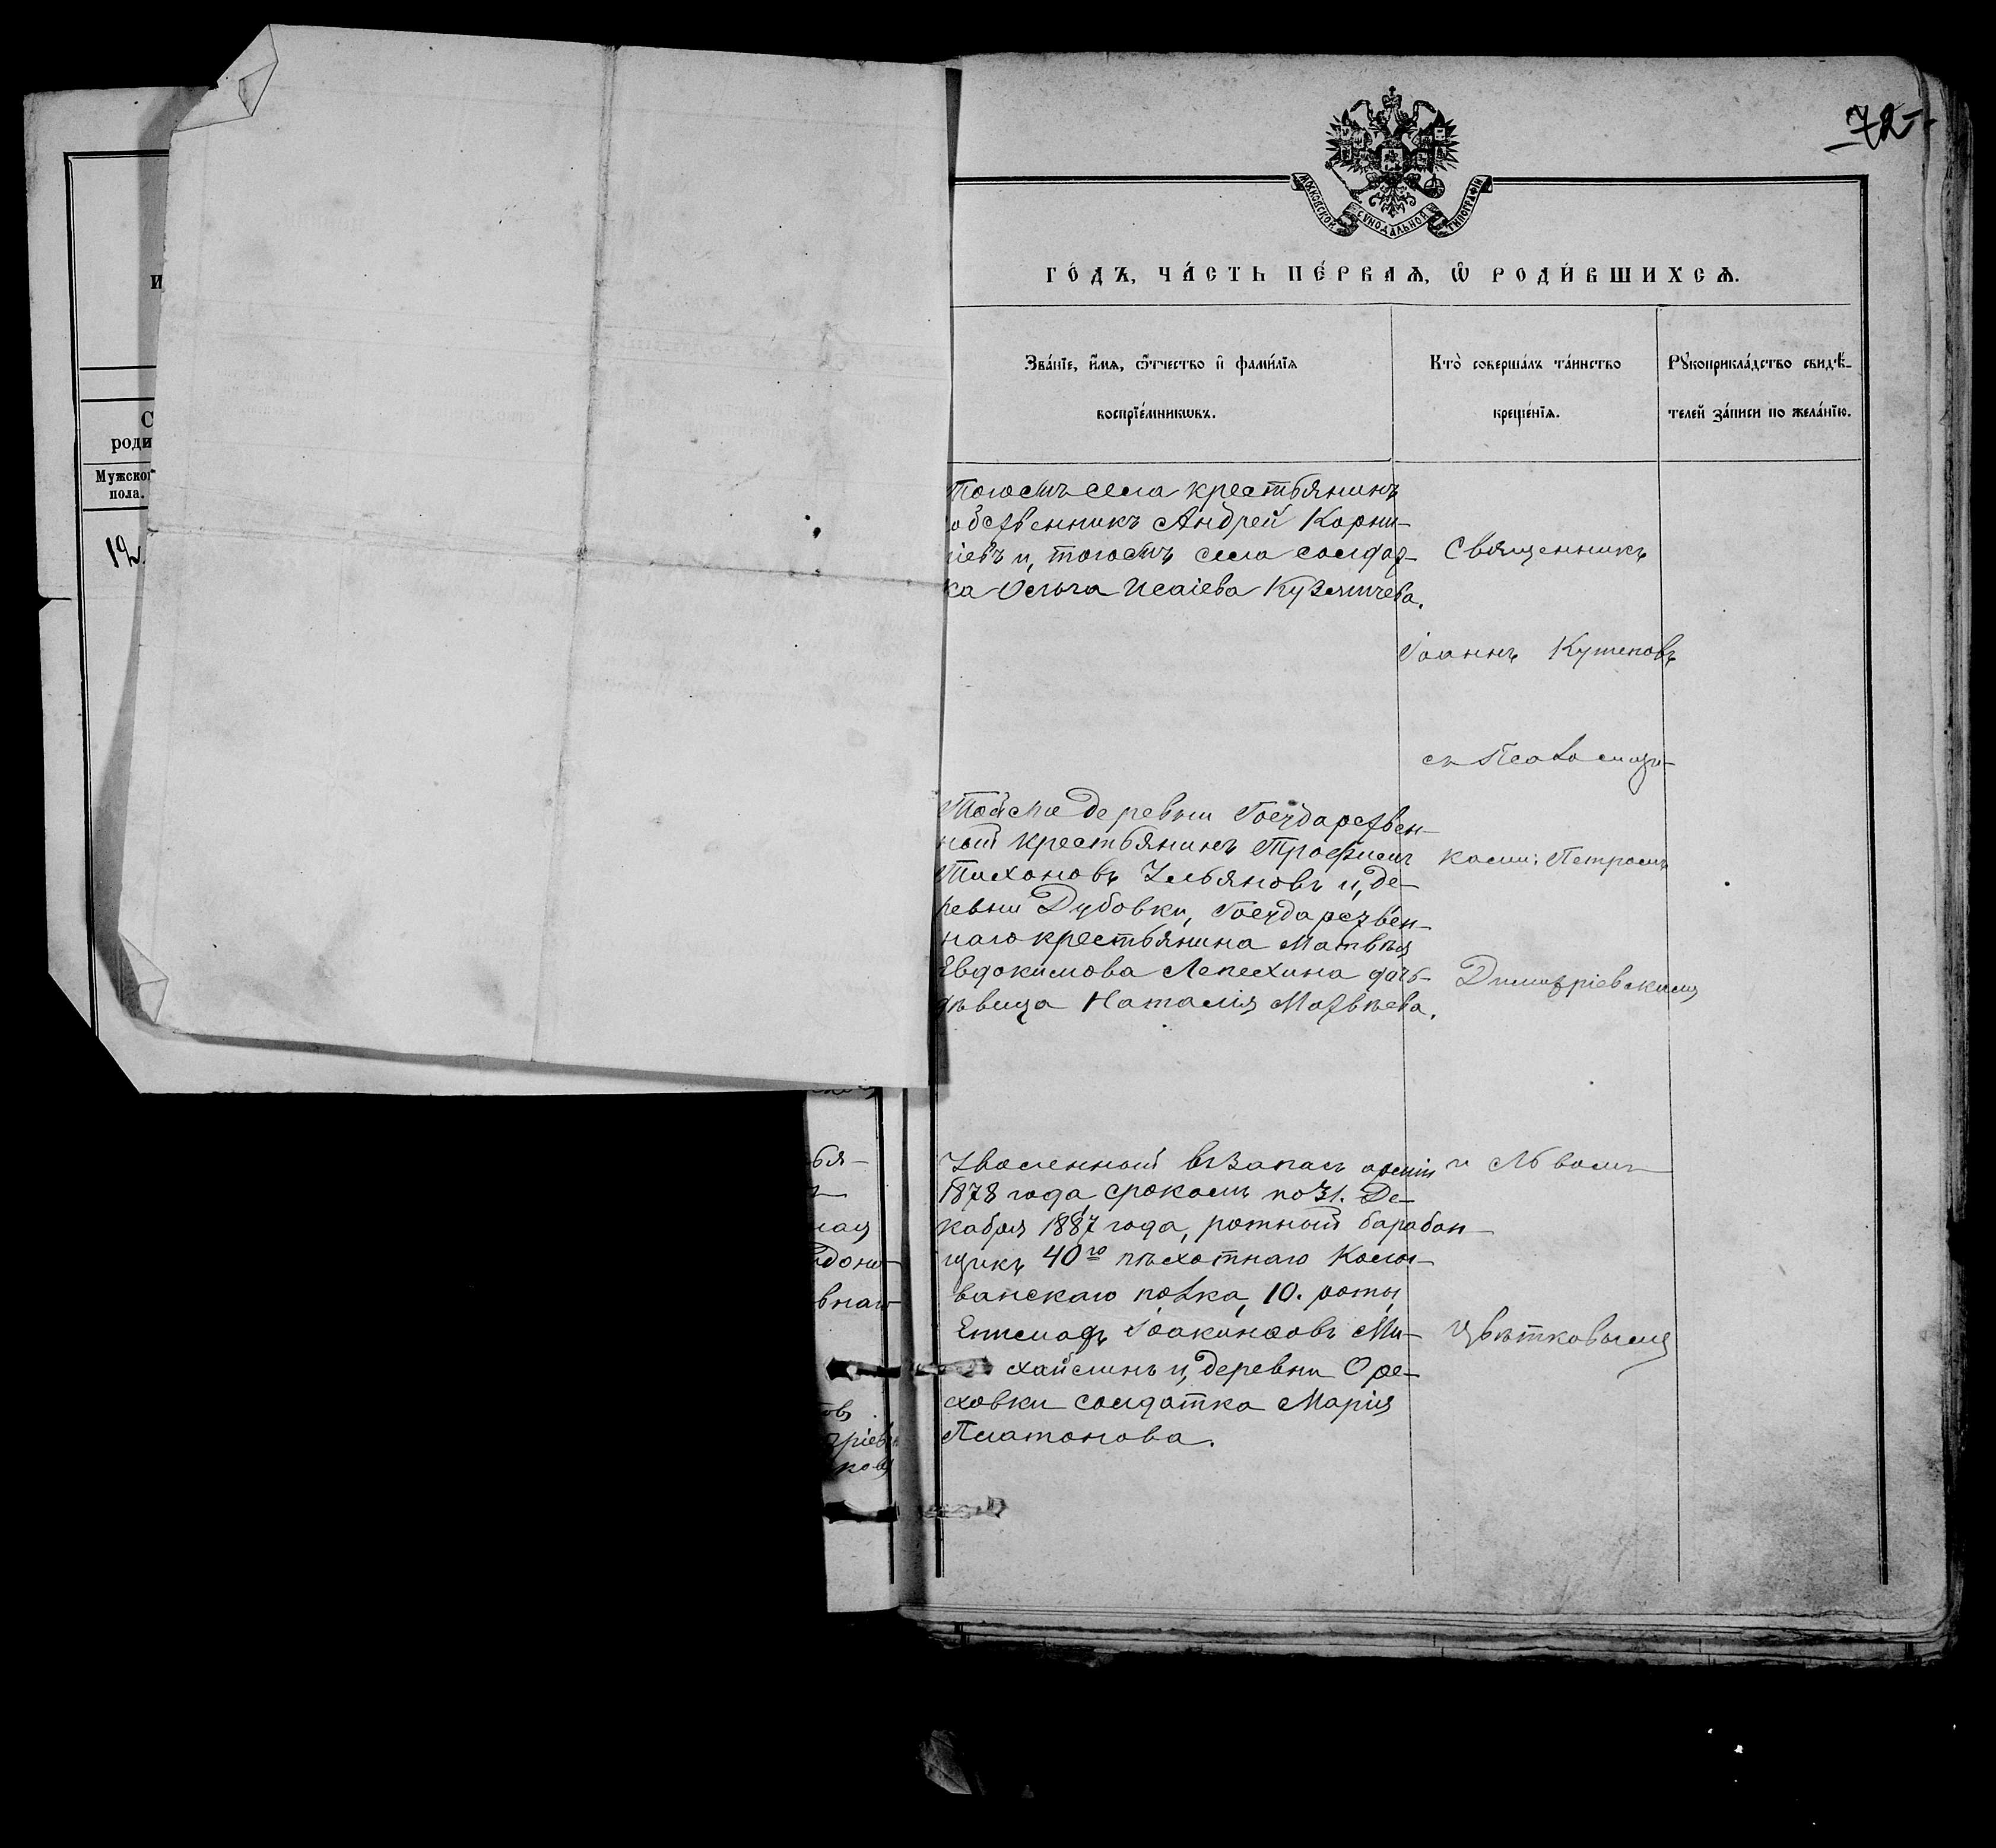 72
МОСКОВСКОЙ СѴНОДАЛЬНОЙ ТИПОГРАФІИ
ГО́ДЪ, ЧА́СТЬ ПЕ́РВАѦ, Ѿ РОДИ́ВШИХСѦ.
Зва́нїе, и҆́мѧ, ѻ҆́тчество и҆ фами́лїѧ
воспрїе́мникѡвъ.
Кто̀ соверша́лъ та́инство
креще́нїѧ.
Рꙋкоприкла́дство свидѣ́-
телей за́писи по жела́нїю.
И
С
роди
Мужско
пола.
12.
тогожъ села крестьянинъ
обственникъ Андрей Корни-
іевъ и, тогожъ села солдат-
ка Ольга Исаіева Кузмичева.
Священникъ
Іоаннъ Кутеповъ
съ Псаломщи-
Тойже деревни Государствен-
ный крестьянинъ Трофимъ
Тихоновъ Ульяновъ и, де-
ревни Дубовки, Государствен-
наго крестьянина Матвѣя
Евдокимова Лепехина дочь-
дѣвица Наталія Матвѣева.
ками: Петромъ
Димитріевскимъ
Уволенный въ запасъ арміи
1878 года срокомъ по 31. Де-
кабря 1887 года, ротный барабан-
щикъ 40го пѣхотнаго Колы-
ванскаго полка, 10. роты,
Іоакинѳовъ Ми-
хайлинъ и, деревни Оре-
ховки солдатка Марія
Платонова.
и Львомъ
Цвѣтковымъ
бя-
ная
вная
ов
ріев
ков